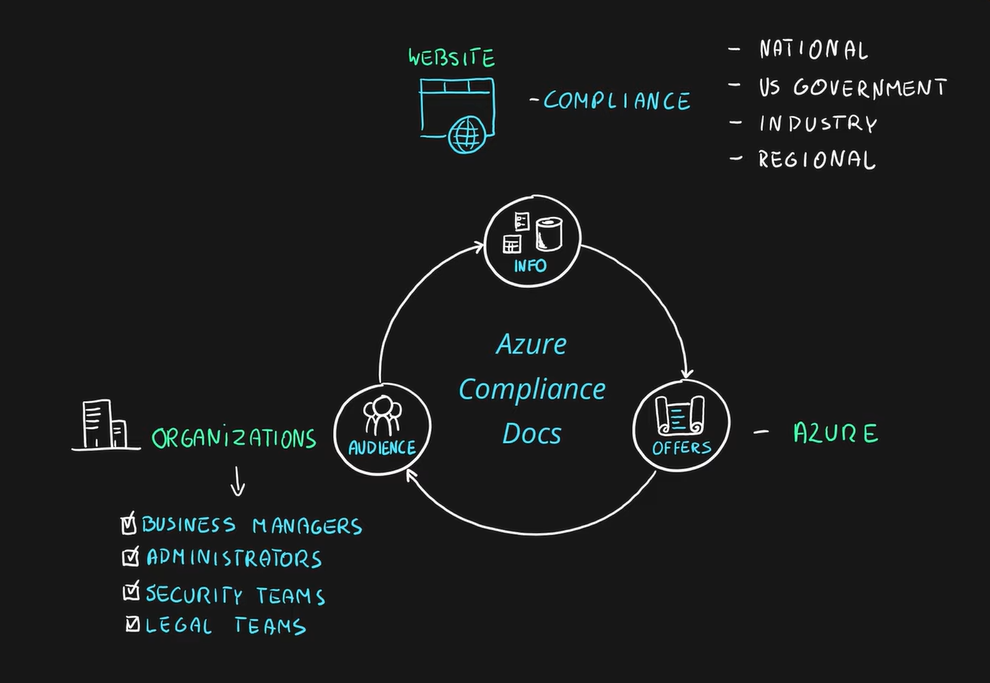 WEBSITE
- COMPLIANCE
- NATIONAL
- US GOVERNMENT
- INDUSTRY
- REGIONAL
INFO
Azure
Compliance
Docs
ORGANIZATIONS
AUDIENCE
OFFERS
- AZURE
BUSINESS MANAGERS
ADMINISTRATORS
SECURITY TEAMS
LEGAL TEAMS